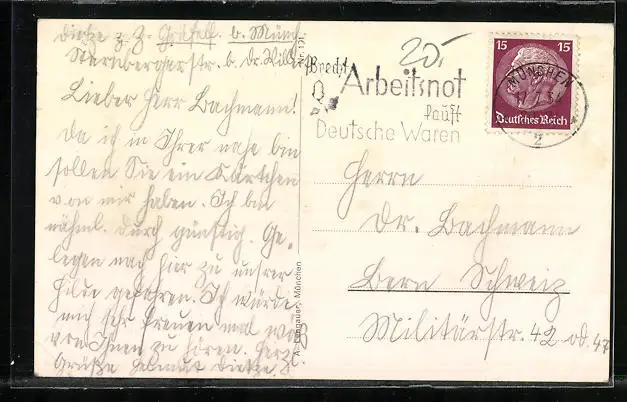 Dietze z. Z. Gräfelf. b. Münch.
Sternbergerstr. b. Dr.
Lieber Herr Bachmann!
Da ich in Ihrer nähe bin
sollen Sie ein Kärtchen
von mir haben. Ich bin
nähml. durch günstig. Ge-
legen nach hier zu unsrer
Hilde gefahren. Ich würde
mich sehr freuen mal was
von Ihnen zu hören. Herz.
Grüße Helmut Dietze
A. Lengauer, München
20.-
Brecht
Arbeitsnot
kauft
Deutsche Waren
15 15
Deutsches Reich
MÜNCHEN
2
Herrn
Dr. Bachmann
Bern Schweiz
Militärstr. 42 od. 47